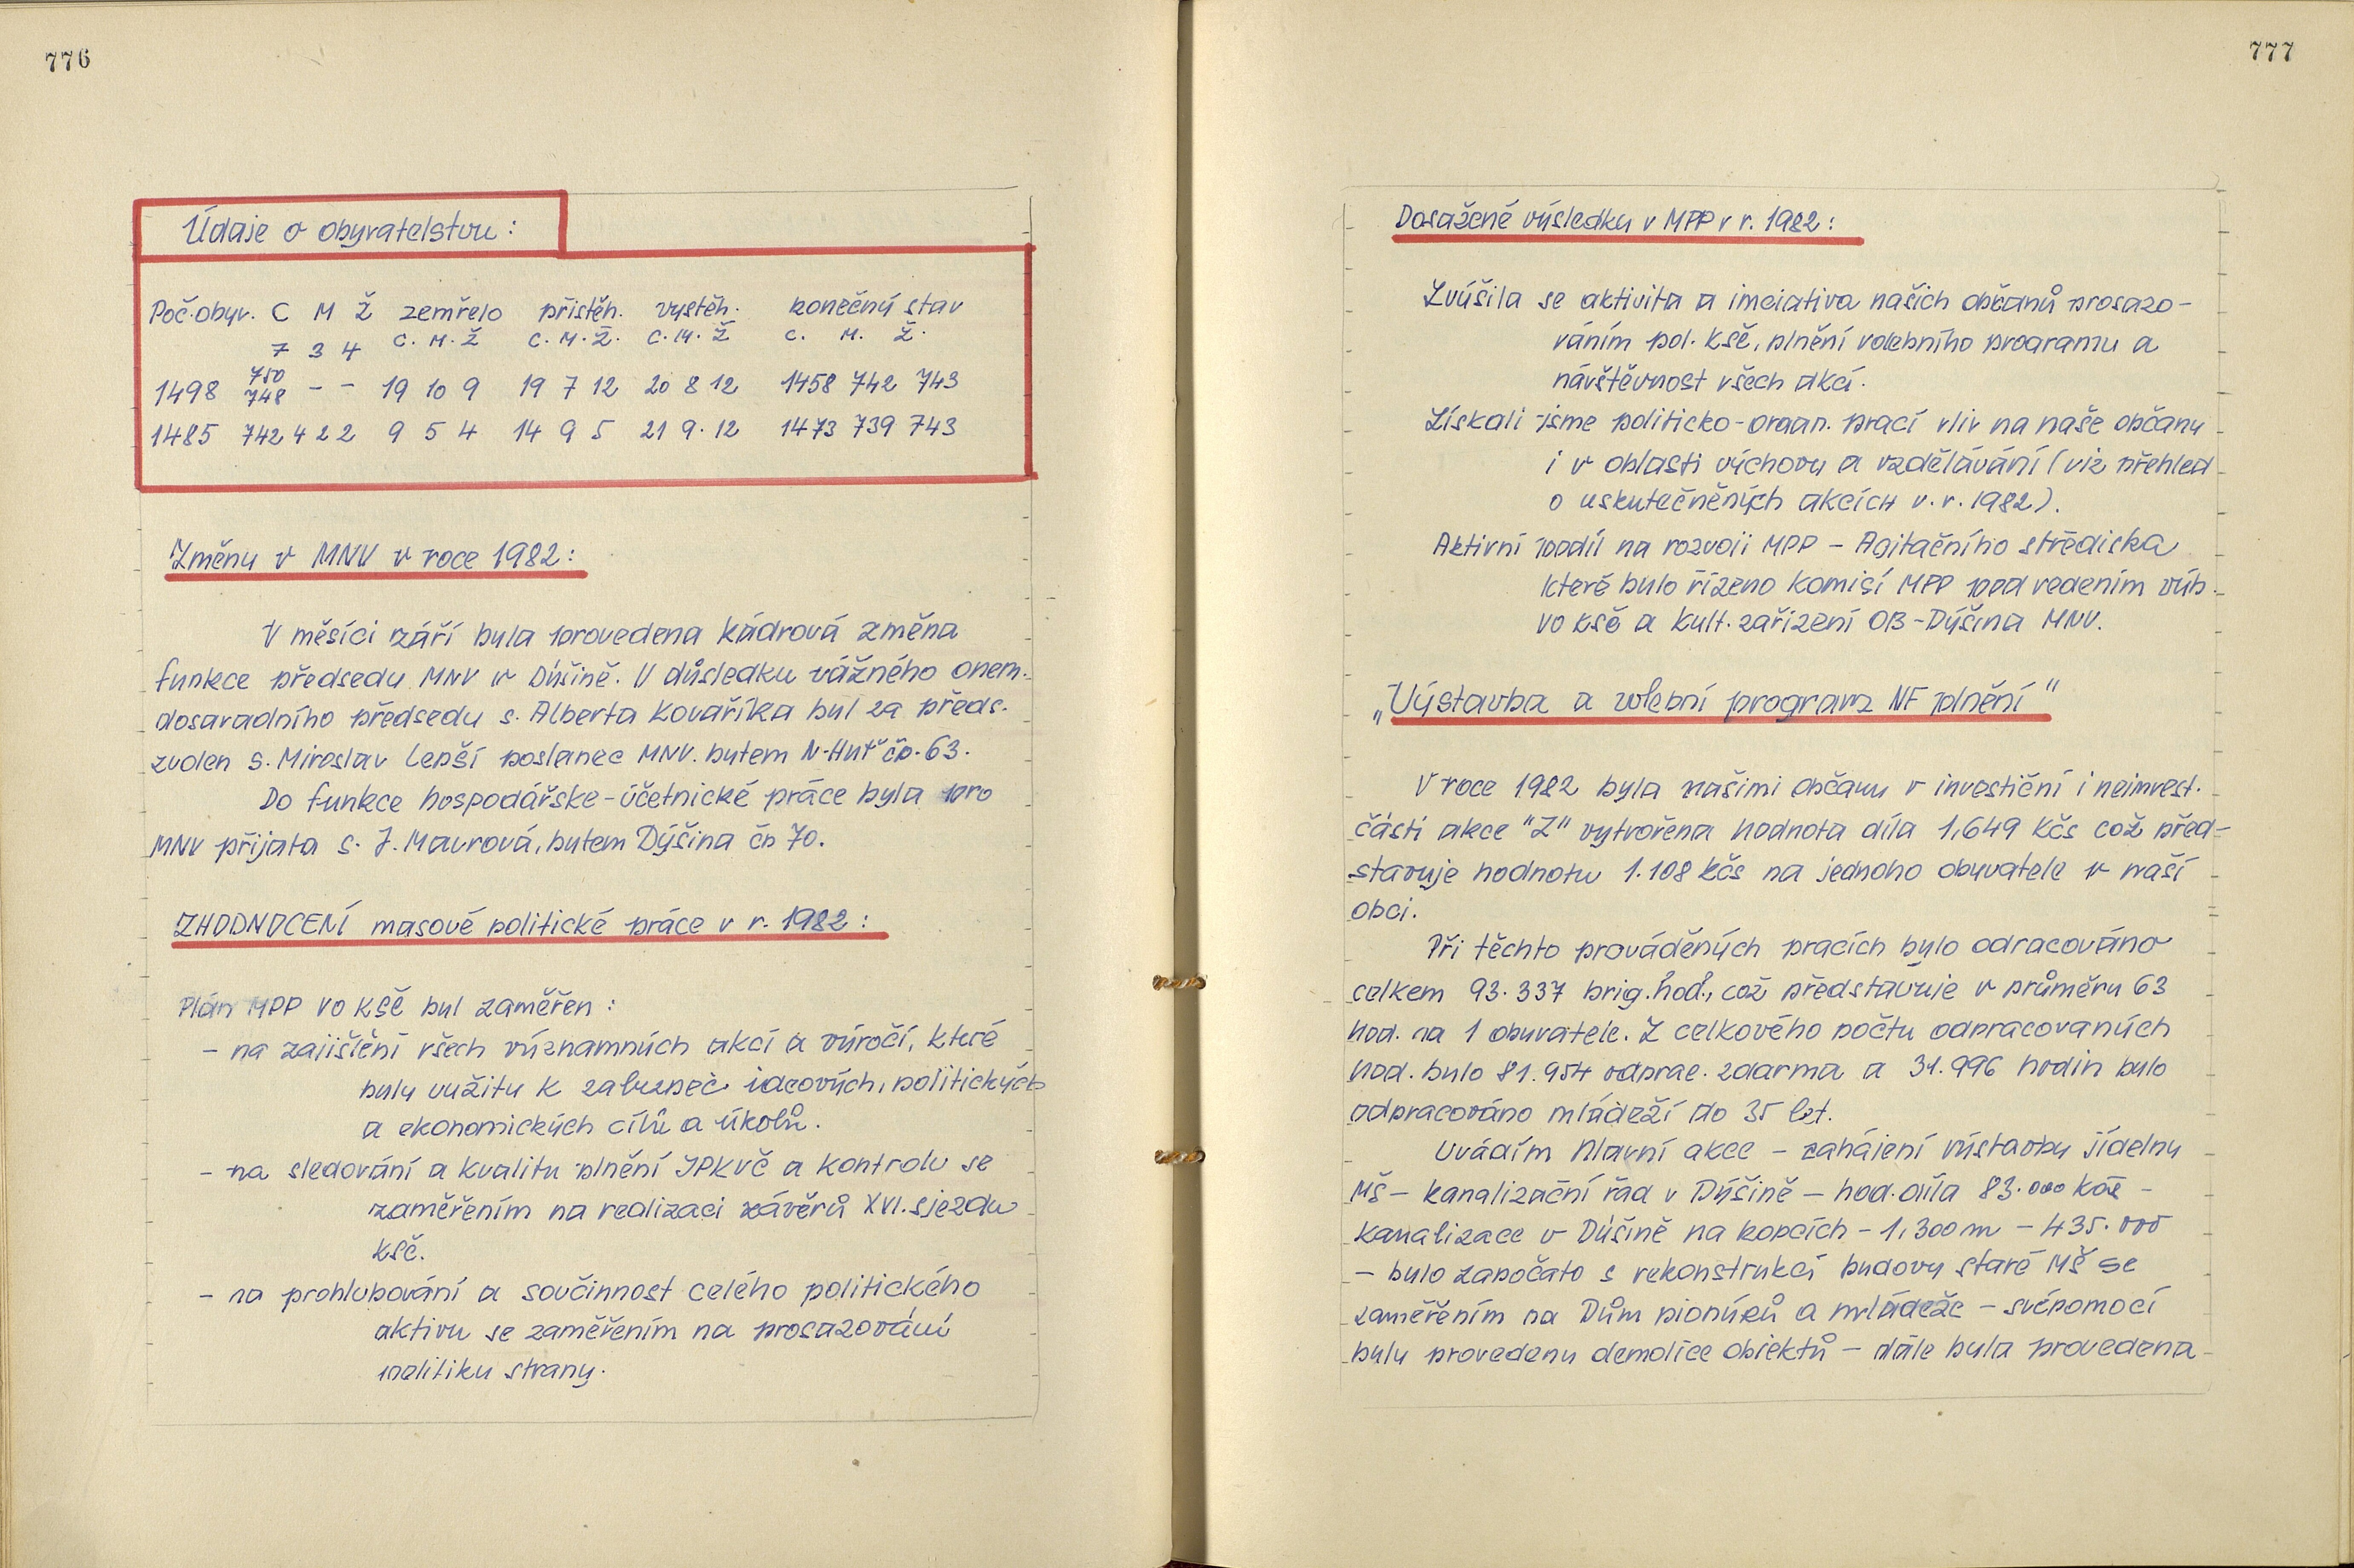 776
Údaje o obyvatelstvu:
Poč. obyv. C M Ž zemřelo přistěh. vystěh. konečný stav
7 3 4 C. M. Ž C. M. Ž. C. M. Ž C. M. Ž.
750
1498 748 - - 19 10 9 19 7 12 20 8 12 1458 742 743
1485 742 4 2 2 9 5 4 14 9 5 21 9. 12 1473 739 743
Změny v MNV v roce 1982:
V měsíci září byla provedena kádrová změna
funkce předsedy MNV v Dýšině. V důsledku vážného onem.
dosavadního předsedy s. Alberta Kovaříka byl za předs.
zvolen s. Miroslav Lepší poslanec MNV. bytem N-Huť čp. 63.
Do funkce hospodářske-účetnické práce byla pro
MNV přijata s. J. Maurová, bytem Dýšina čp 70.
ZHODNOCENÍ masové politické práce v r. 1982:
Plán MPP VO KSČ byl zaměřen:
- na zajištění všech významných akcí a výročí, které
byly využity k zabezpeč ideových, politických
a ekonomických cílů a úkolů.
- na sledování a kvalitu plnění JPKVČ a kontrolu se
zaměřením na realizaci závěrů XVI. sjezdu
KSČ.
- na prohlubování a součinnost celého politického
aktivu se zaměřením na prosazování
politiky strany.
777
Dosažené výsledky v MPP v r. 1982:
Zvýšila se aktivita a iniciativa našich občanů prosazo-
váním pol. KSČ, plnění volebního programu a
návštěvnost všech akcí.
Získali jsme politicko-organ. prací vliv na naše občany
i v oblasti výchovy a vzdělávání (viz přehled
o uskutečněných akcích v. r. 1982).
Aktivní podíl na rozvoji MPP - Agitačního střediska
které bylo řízeno komisí MPP pod vedením výb.
VO KSČ a Kult. zařízení OB-Dýšina MNV.
„Výstavba a volební program NF plnění"
V roce 1982 byla našimi občany v investiční i neinvest.
části akce "Z" vytvořena hodnota díla 1,649 Kčs což před-
stavuje hodnotu 1.108 Kčs na jednoho obyvatele v naší
obci.
Při těchto prováděných pracích bylo odracováno
celkem 93.337 brig. hod., což představuje v průměru 63
hod. na 1 obyvatele. Z celkového počtu odpracovaných
hod. bylo 81.954 odprac. zdarma a 31.996 hodin bylo
odpracováno mládeží do 35 let.
Uvádím hlavní akce - zahájení výstavby jídelny
MŠ - kanalizační řád v Dýšině - hod. díla 83.000 Kčs -
kanalizace v Dýšině na kopcích - 1,300 m - 435.000
- bylo započato s rekonstrukcí budovy staré MŠ se
zaměřením na Dům pionýrů a mládeže - svépomocí
byly provedeny demolice objektů - dále byla provedena